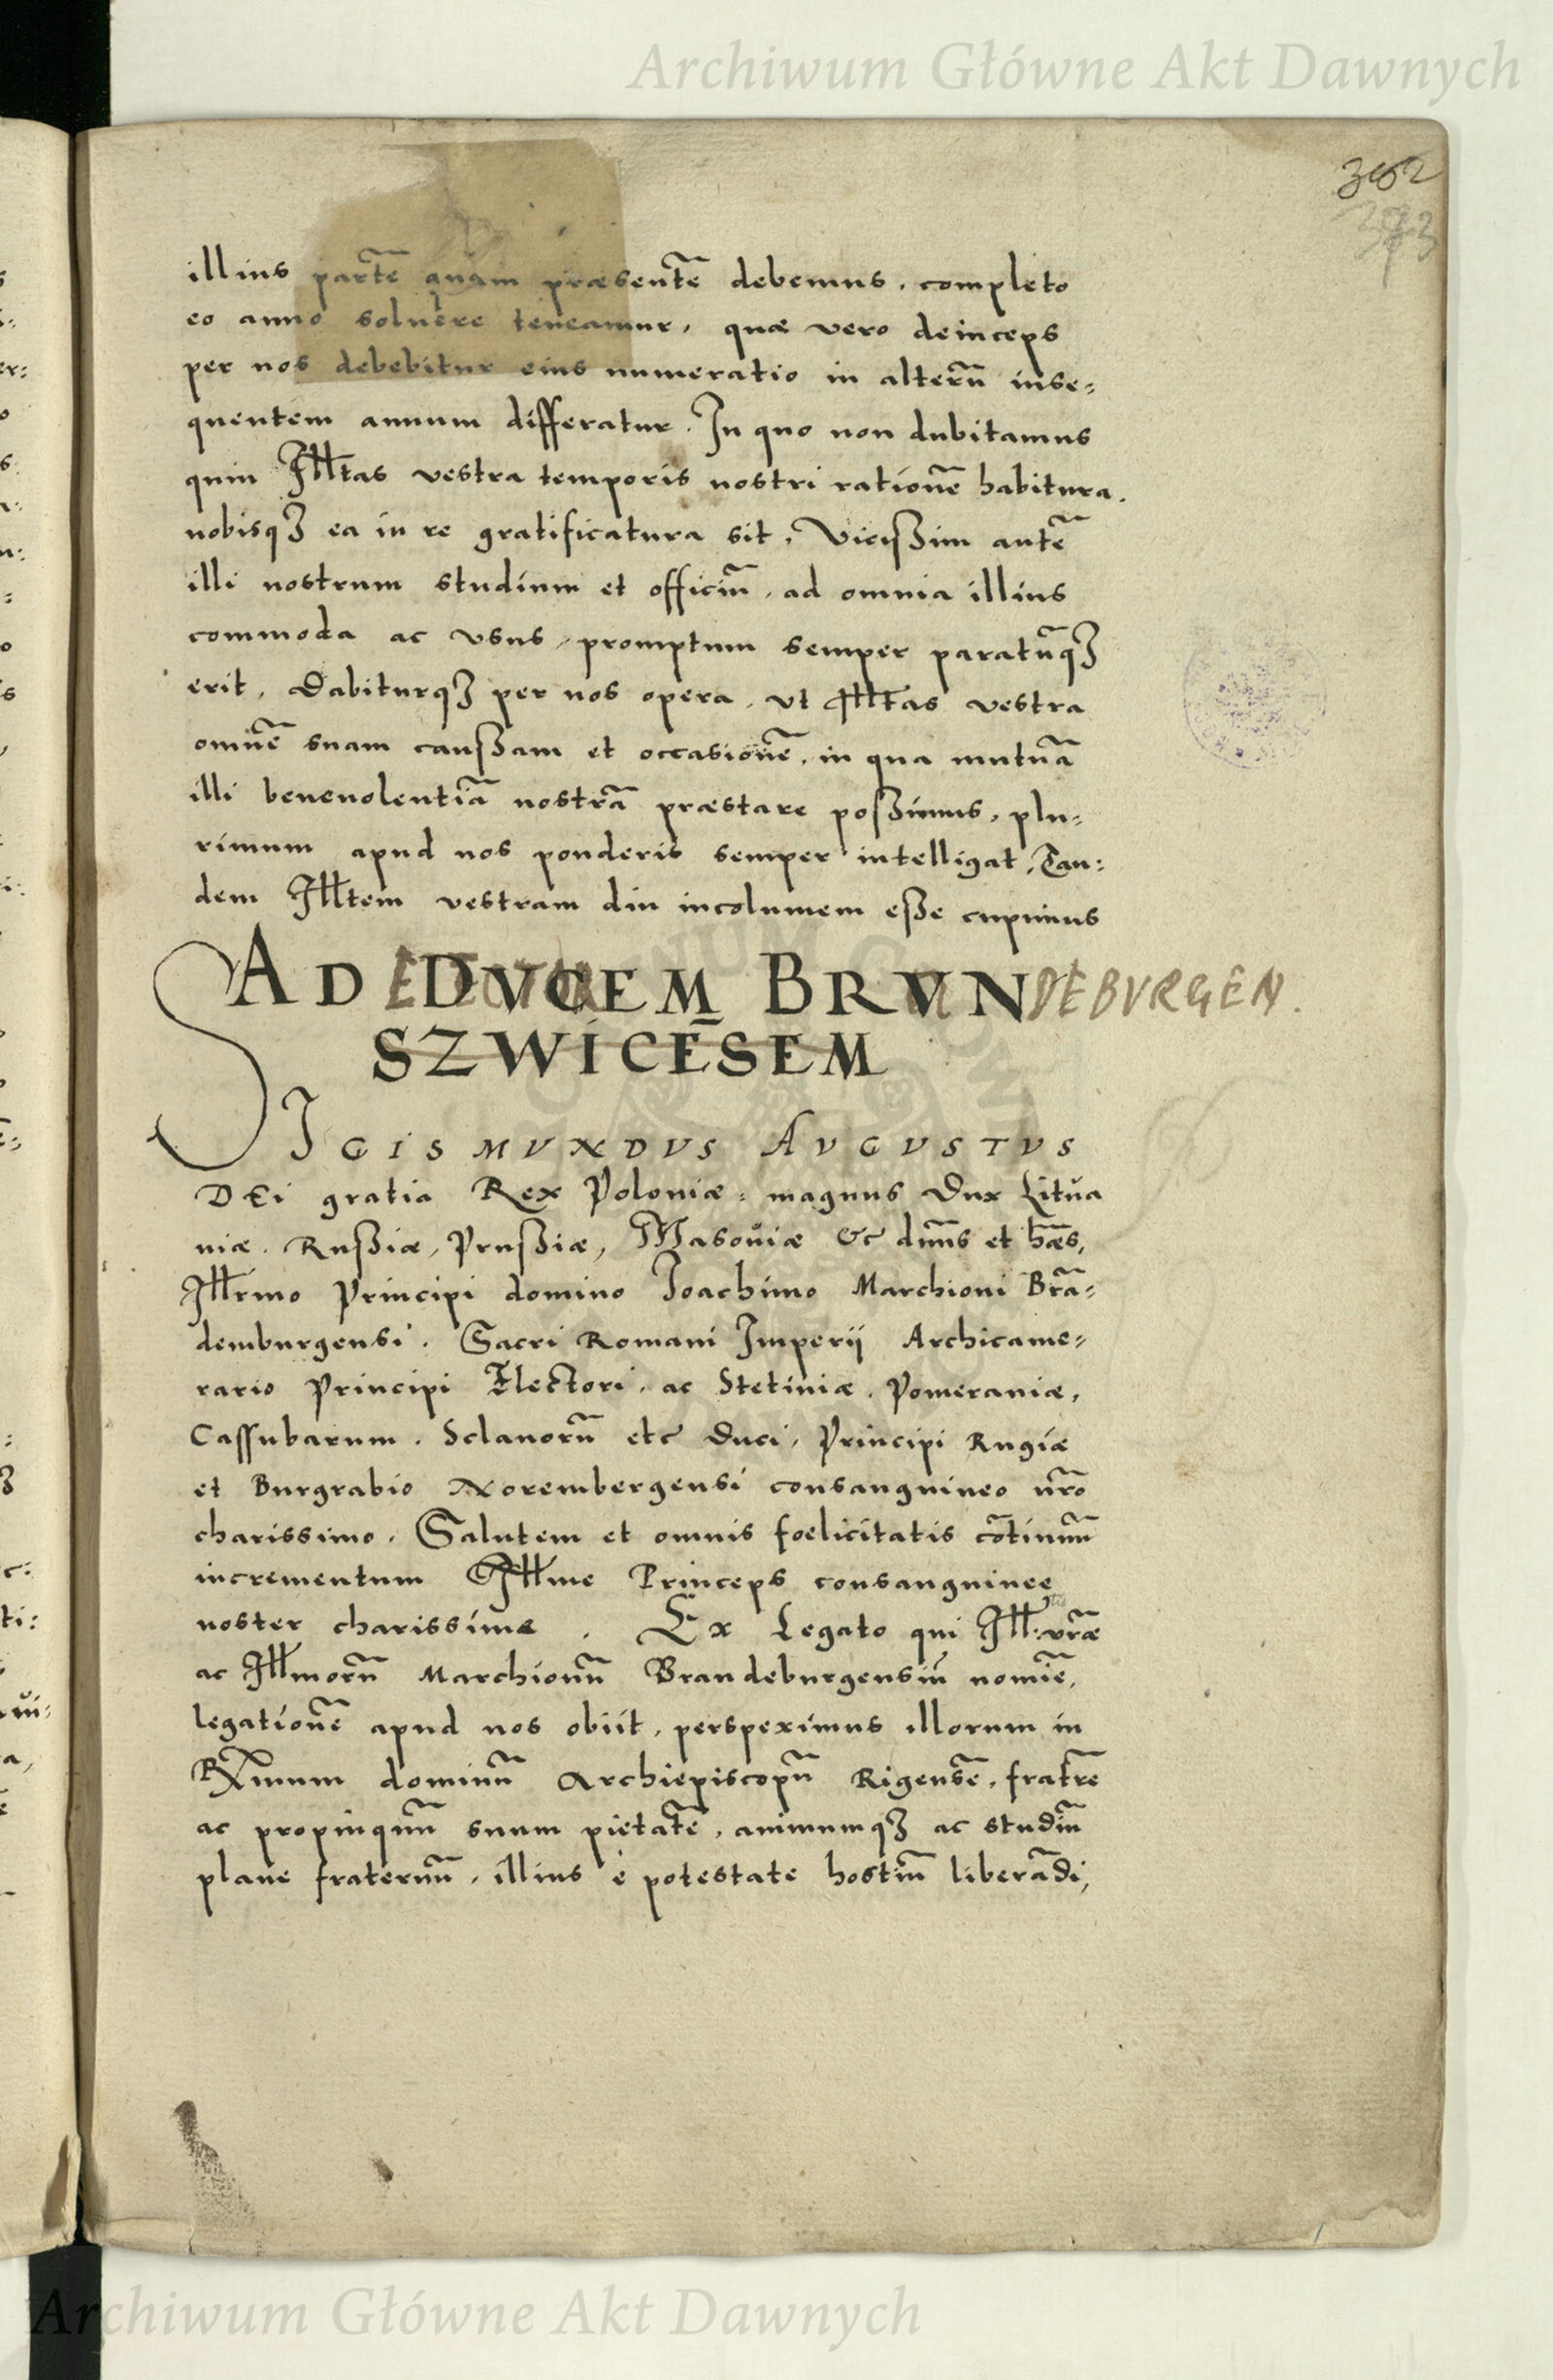 Archiwum Główne Akt Dawnych
362
373
illius partē quam præsentē debemus, completo
eo anno soluere teneamur, quæ vero deinceps
per nos debebitur eius numeratio in alterū inse=
quentem annum differatur. In quo non dubitamus
quin Illtas vestra temporis nostri rationē habitura.
nobisqꝫ ea in re gratificatura sit, Vicißim autē
illi nostrum studium et officiū, ad omnia illius
commoda ac vsus, promptum semper paratūqꝫ
erit, Dabiturqꝫ per nos opera, vt Illtas vestra
omnē suam caußam et occasionē, in qua mutuā
illi beneuolentiā nostrā præstare poßimus, plu=
rimum apud nos ponderis semper intelligat, Tan=
dem Illtem vestram diu incolumem eße cupimus
AD DVCEM BRVN DEBVRGEN.
SZWICĒSEM
SIGISMVNDVS AVGVSTVS
DEi gratia Rex Poloniæ, magnus Dux Litŭa
niæ, Rußiæ, Prußiæ, Masoŭiæ &c dn̄us et hǣs,
Illrmo Principi domino Joachimo Marchioni Brā=
demburgensi, Sacri Romani Imperij Archicame=
rario Principi Electori, ac Stetiniæ, Pomeraniæ,
Cassubarum, Sclauorū etc Duci, Principi Rugiæ
et Burgrabio Norembergensi consanguineo nr̄o
charissimo, Salutem et omnis foelicitatis cōtinuū
incrementum Illme Princeps consanguinee
noster charissime. Ex Legato qui Ill: vr̄æ
ac Illmorū Marchionū Brandeburgensiū nomīe,
legationē apud nos obiit, perspeximus illorum in
Rx̄mum dominū Archiepiscopū Rigensē, fratrē
ac propinquū suum pietatē, animumqꝫ ac studiū
plane fraternū, illius è potestate hostiū liberādi,
Archiwum Główne Akt Dawnych